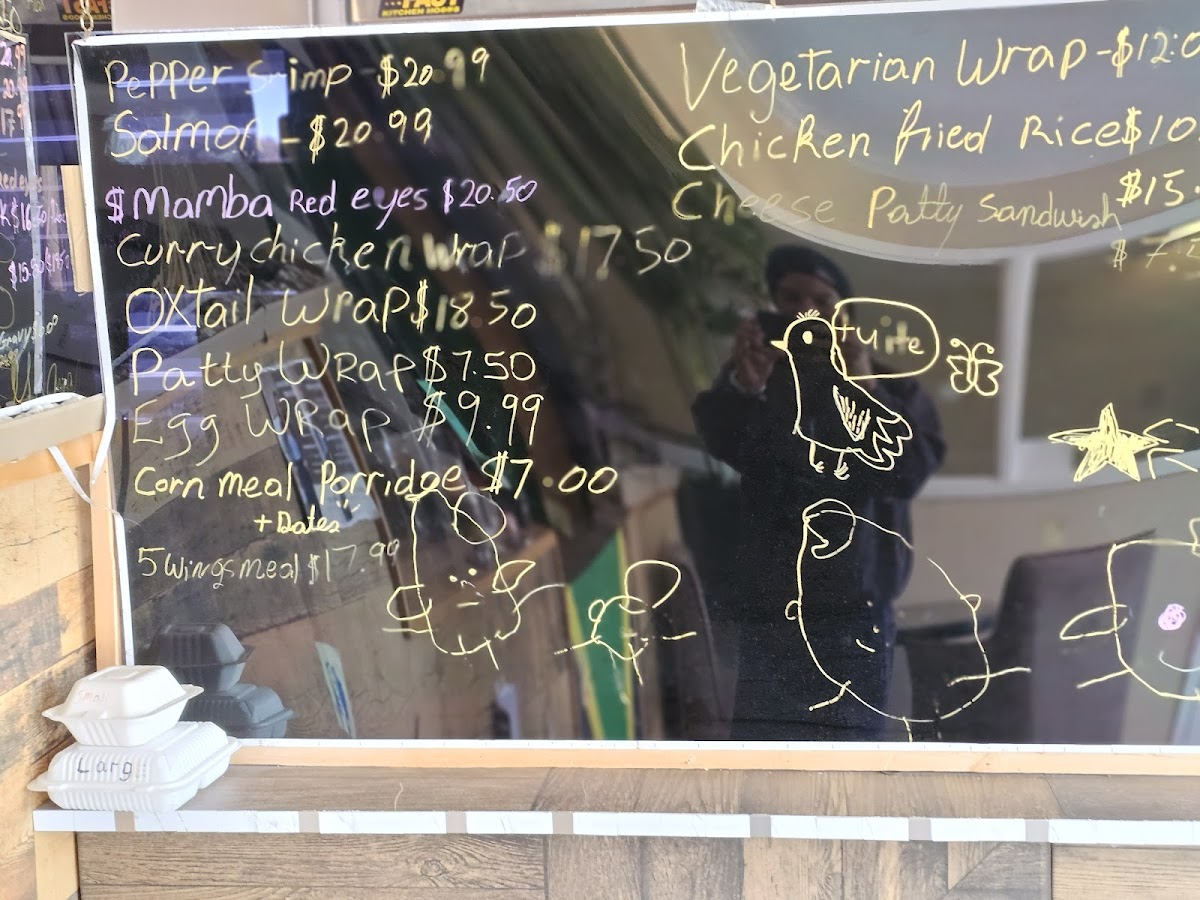 Pepper Srimp - $20.99
Salmon - $20.99
$ Mamba Red eyes $20.50
Curry chicken Wrap $17.50
OXtail Wrap $18.50
Patty WRap $7.50
Egg WRap $9.99
Corn meal Porridge $7.00
+ Dates
5 wings meal $17.99
Vegetarian Wrap - $12.0
Chicken fried Rice $10.
Cheese Patty Sandwish $15.
$7.
tuite
Larg
KITCHEN HOODS